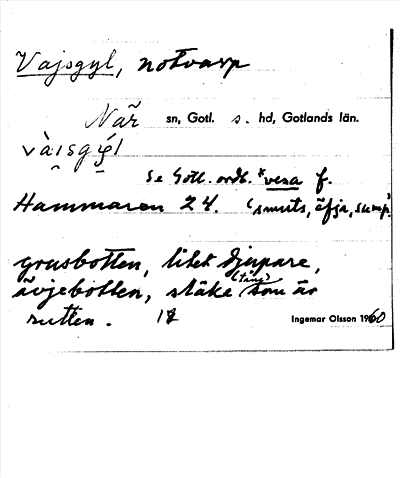 Vajsgyl, notvarp
När sn, Gotl. s. hd, Gotlands län.
Se Gotl. ordb. *vesa f.
Hammaren 24. (smuts, äfja, sump)
grusbotten, litet djupare,
ävjebotten, släke (tång) som är
rutten. 17
Ingemar Olsson 1960